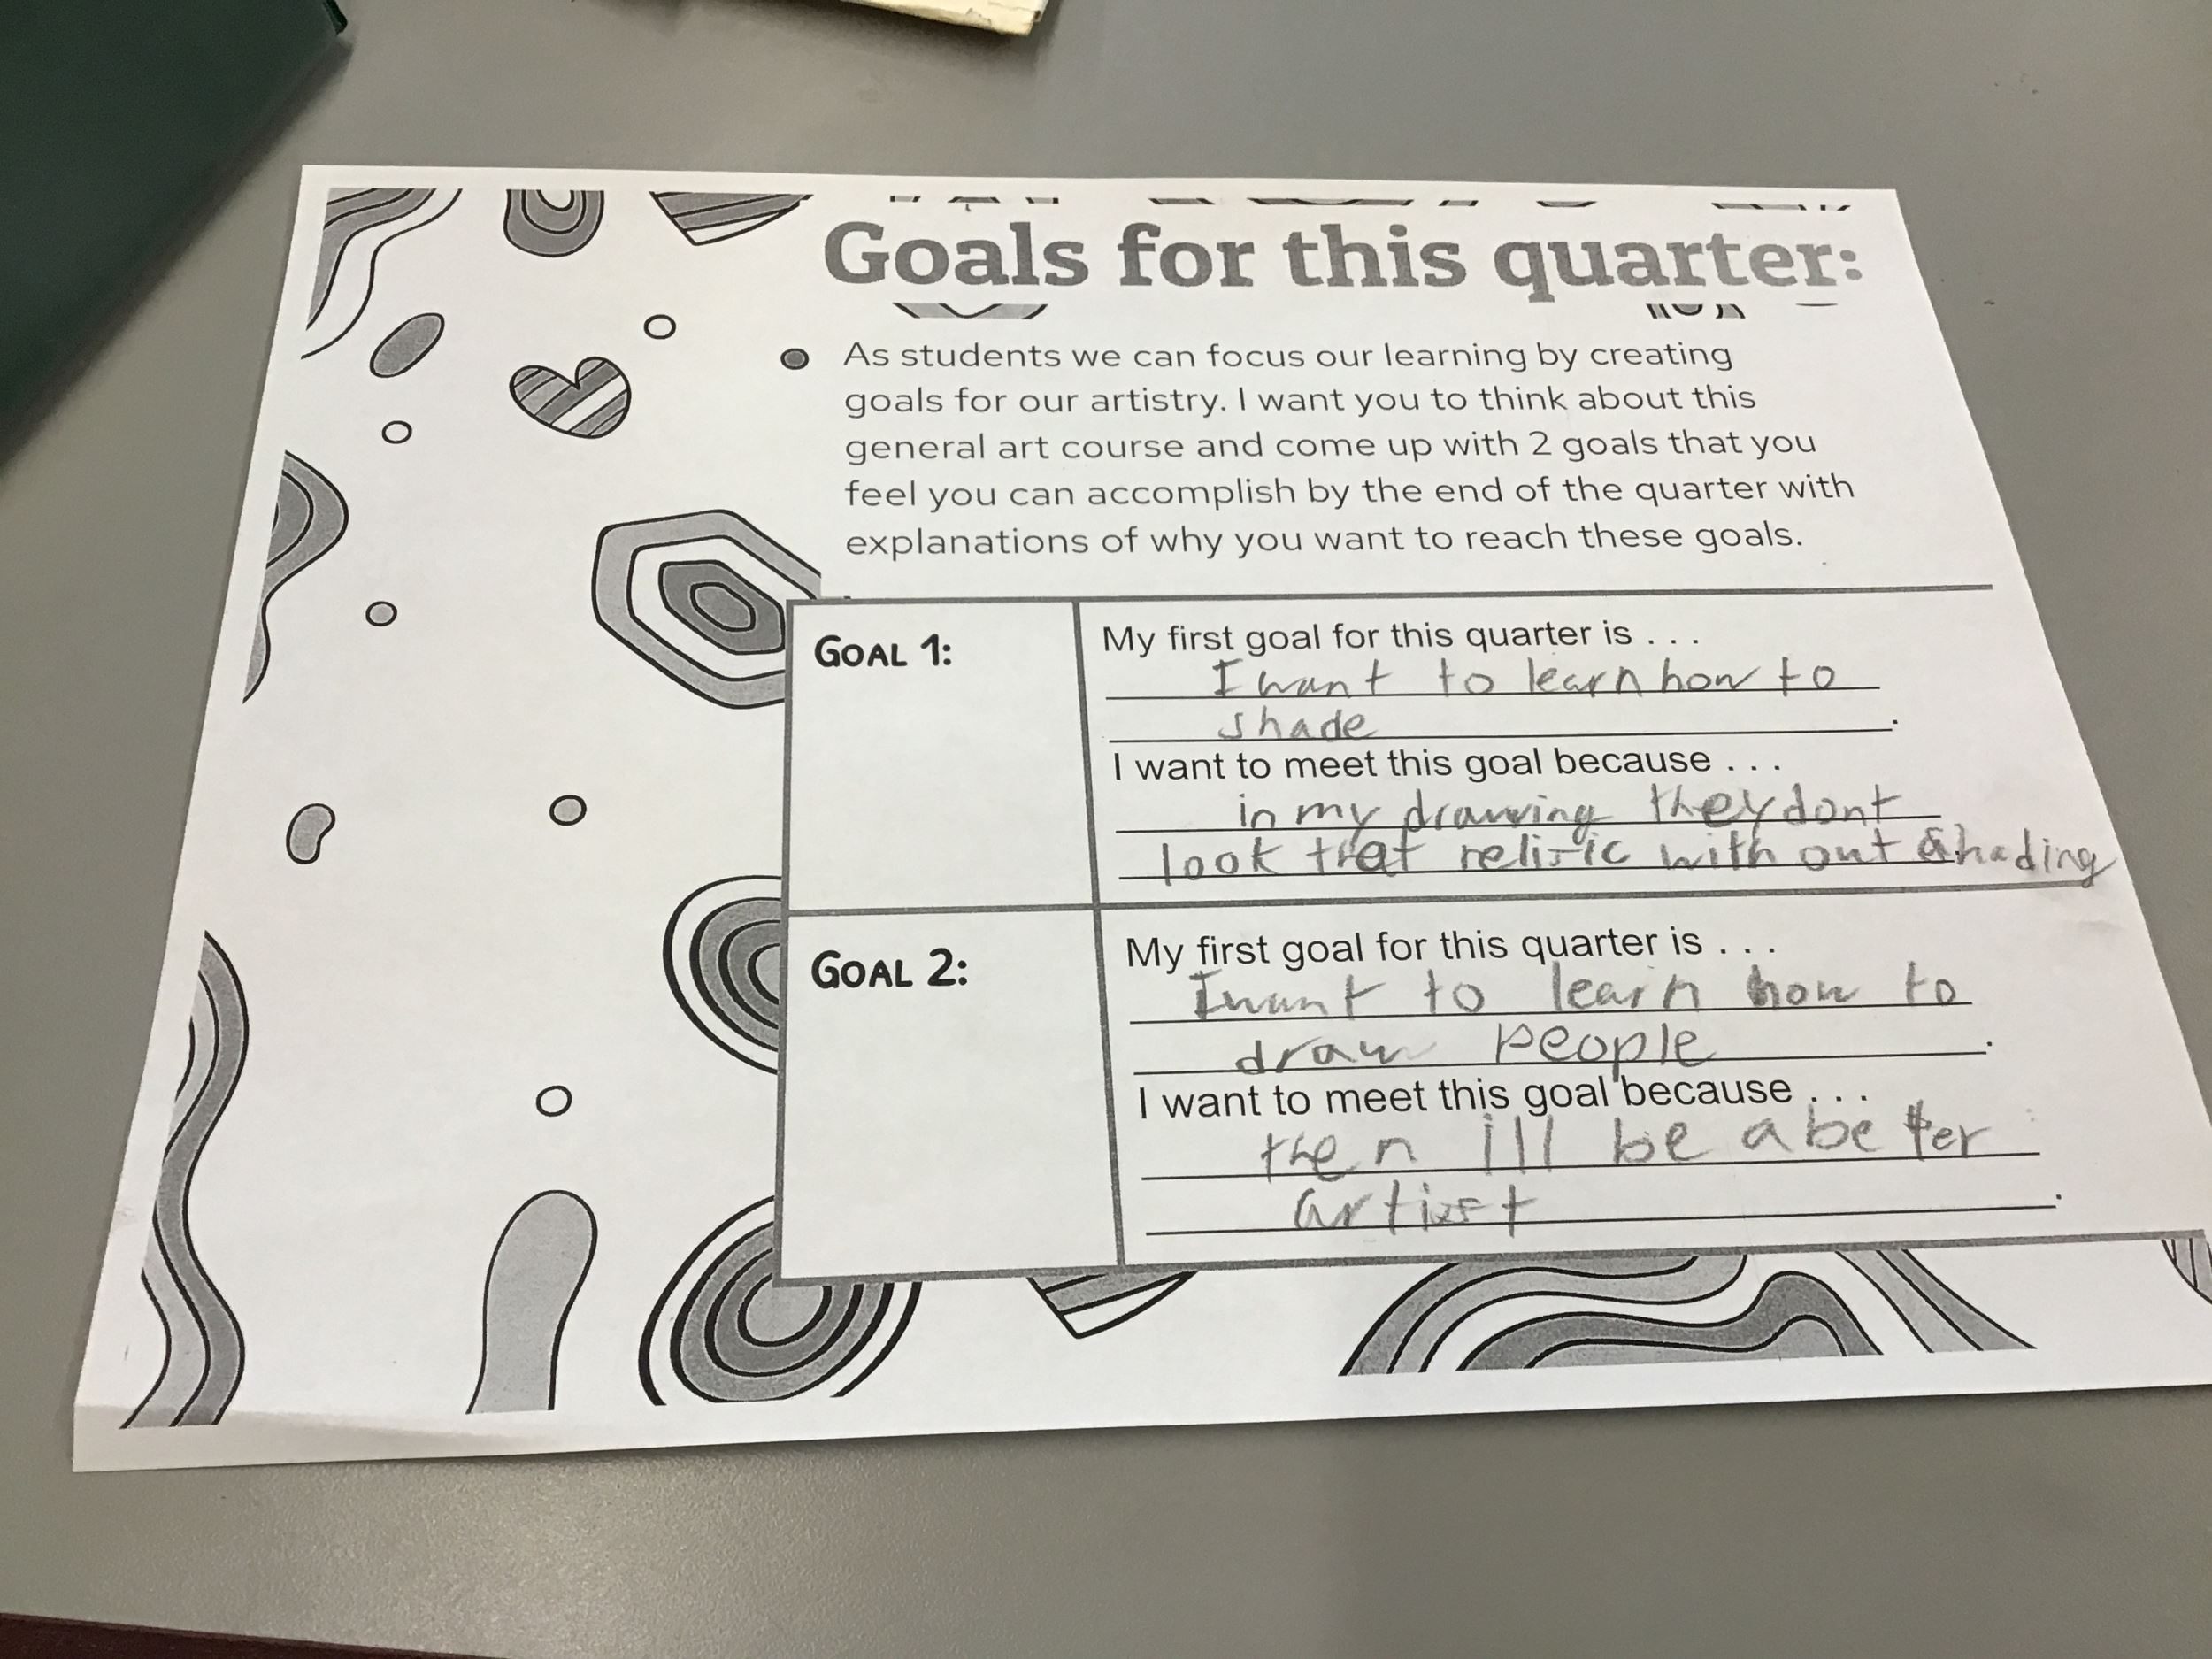 Goals for this quarter:
As students we can focus our learning by creating
goals for our artistry. I want you to think about this
general art course and come up with 2 goals that you
feel you can accomplish by the end of the quarter with
explanations of why you want to reach these goals.
GOAL 1:
My first goal for this quarter is . . .
I want to learn how to
shade .
I want to meet this goal because . . .
in my drawing they dont
look that relisic with out shading
GOAL 2:
My first goal for this quarter is . . .
I want to learn how to
draw people .
I want to meet this goal because . . .
then ill be a better
artist .